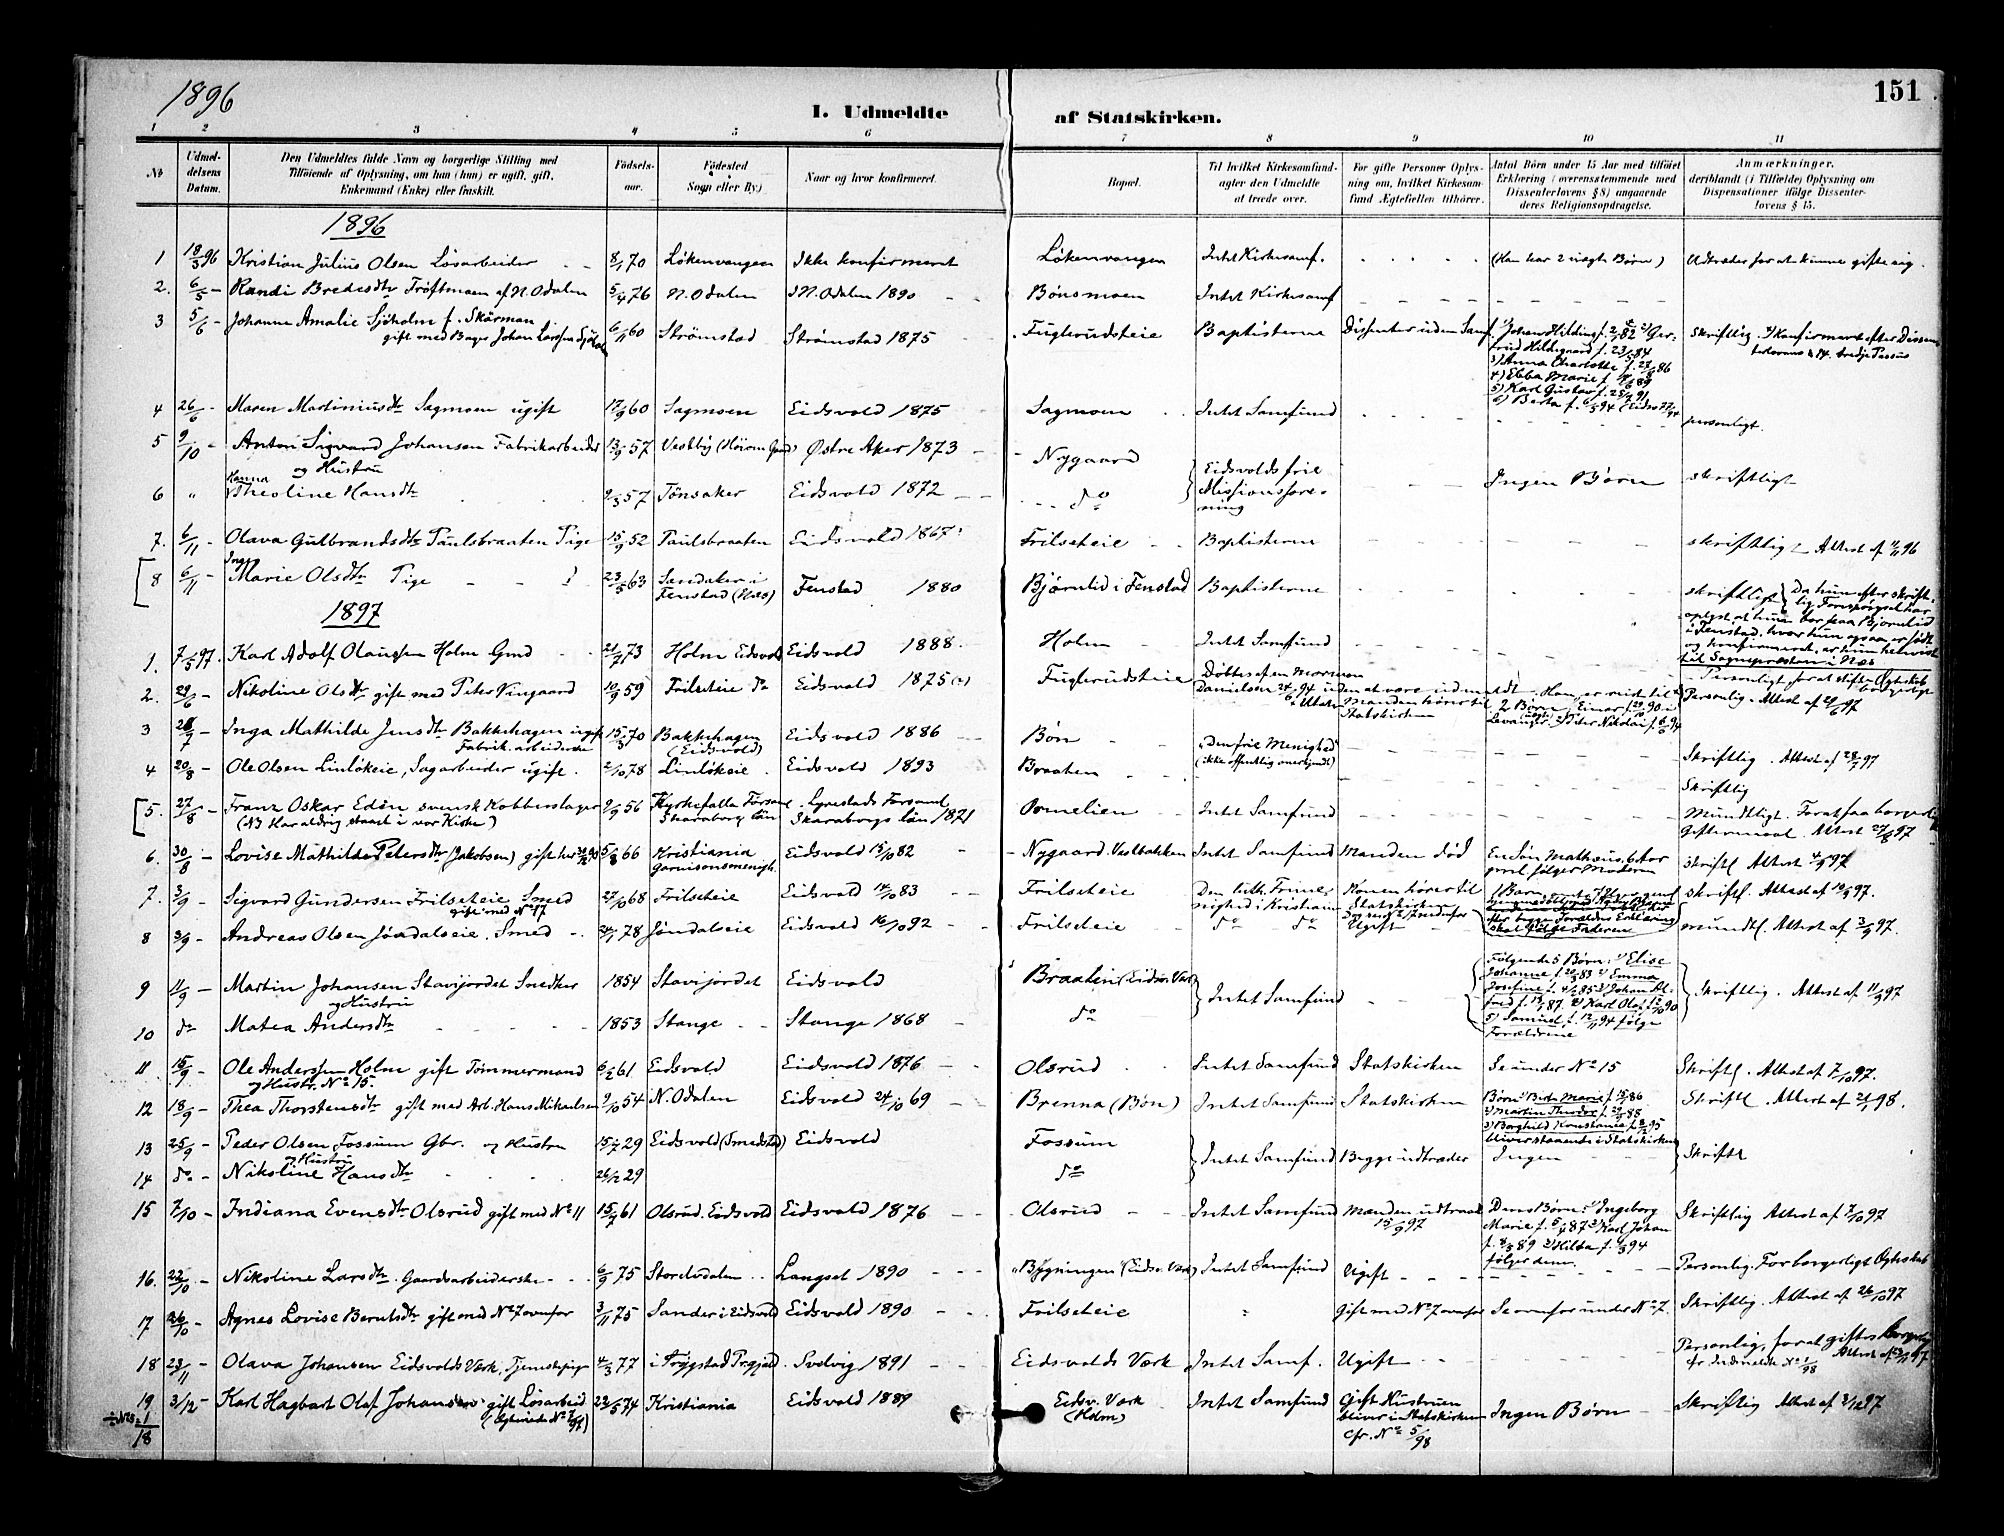 1896
151
I. Udmeldte af Statskirken.
1 2 3 4 5 6 7 8 9 10 11
No
Udmeldelsens Datum.
Den Udmeldtes fulde Navn og borgerlige Stilling med Tilføiende af Oplysning, om han (hun) er ugift, gift, Enkemand (Enke) eller fraskilt.
Fødselsaar.
Fødested (Sogn eller By).
Naar og hvor konfirmeret.
Bopæl.
Til hvilket Kirkesamfund agter den Udmeldte at træde over.
For gifte Personer Oplysning om, hvilket Kirkesamfund Ægtefællen tilhører.
Antal Børn under 15 Aar med tilføiet Erklæring (overensstemmende med Dissenterlovens § 8) angaaende deres Religionsopdragelse.
Anmærkninger, deriblandt (i Tilfælde) Oplysning om Dispensationer ifølge Dissenterlovens § 15.
1896
1 18/3 96 Kristian Julius Olsen Løsarbeider 8/1 70 Løkenvangen Ikke konfirmeret Løkenvangen Intet Kirkesamf. (Han har 2 uægte Børn) Udtræder for at kunne gifte sig.
2. 6/5 - Randi Bredesdtr Trøftmoen af N. Odalen 5/4 76 N. Odalen i N. Odalen 1890 Bønsmoen Intet Kirkesamf
3 5/6 - Johanne Amalie Sjöholm f. Skärman
gift med Bager Johan Larsson Sjöholm 6/11 60 Strömstad Strömstad 1875 Fuglerudsteie Baptisterne Dissenter uden Samf. 1) Johan Hilding 2) Gerfrud Hildegaard f. 23/5 84
3) Anna Charlotte f. 27/8 86
4) Ebba Marie f. 89
5) Karl Gustav f. 91
6) Berta f. 6/3 94
Skriftlig. Konfirmeret efter Dissenterlovens tredje Passus
4 26/6 - Maren Martiniusdtr Sagmoen ugift 17/9 60 Sagmoen Eidsvold 1875 Sagmoen Intet Samfund personligt.
5 9/10 Anton Sigvard Johansen Fabrikarbeider
og Hustru 13/9 57 Vestby Østre Aker 1873 Nygaard Eidsvolds frie Missionsforening Ingen Børn skriftligt
6 " Hanna Theoline Hansdtr 2/3 57 Tønsaker Eidsvold 1872 do
7. 6/11 - Olava Gulbrandsdtr Paulsbraaten Pige 15/9 52 Paulsbraaten Eidsvold 1867 Frilseteie Baptisterne skriftligt - Attest af 11/11 96
8 6/11 - Inga Marie Olsdtr Pige 23/5 63 Sandaker i Fenstad (Næs) Fenstad 1880 Bjørnlid i Fenstad Baptisterne skriftligt
Da hun efter skriftlig Forespørgsel har oplyst at hun bor paa Bjørnlid i Fenstad, hvor hun ogsaa er født og konfirmeret, er hun henvist til Sognepræsten i Næs
1897
1. 7/5 97. Karl Adolf Olaussen Holm Gmd 21/7 73 Holm Eidsvold Eidsvold 1888. Holm Intet Samfund Personligt for at stifte Ægteskab borgerligt
2. 29/6 - Nikoline Olsdtr gift med Peter Vingaard 10/9 59 Frilseteie do Eidsvold 1875 Fuglerudsteie Døbtes af en Mormon Danielsen 24/6 94 uden at være udmeldt. Manden hører til Statskirken 2 Børn Einar f. 90 i Levanger. Peter Nikolai f. 94 Personlig. Attest af 29/6 97
3 28/7 - Inga Mathilde Jensdtr Bakkehagen ugift
Fabrikarbeiderske 15/3 70 Bakkehagen (Eidsvold) Eidsvold 1886 Bøn "Den frie Menighed" (ikke offentlig anerkjendt) Skriftlig. Attest af 28/7 97
4 20/8 - Ole Olsen Linløkeie, Sagarbeider ugift. 2/10 78 Linløkeie. Eidsvold 1893 Braaten Skriftlig
5. 27/8 - Franz Oskar Edén svensk Kobberslager
(NB Har aldrig staaet i vor Kirke) 2/9 56 Kyrkefalla Församl Skaraborg län Lyrestads Forsaml. Skaraborgs län 1871 Ormelien Intet Samfund Mundtligt. For at faa borgerlig Giftermaal. Attest 27/8 97
6. 30/8 - Lovise Mathilde Petersdtr (Jakobsen) gift 5/8 66 Kristiania Garnisonsmenigh. Eidsvold 15/10 82 Nygaard. Vestbakken Intet Samfund Manden død En Søn Mathæus, 6 Aar gml. følger Moderen skriftl Attest 4/9 97
7. 3/9 - Sigvard Gundersen Frilseteie Smed
gift med No 17 27/10 68 Frilseteie Eidsvold 14/10 83 Frilseteie Den luth. Frimenighed i Kristiania Konen hører til Statskirken skal følge Faderen skriftl. Attest af 10/9 97.
8 3/9 - Andreas Olsen Jøndalseie. Smed 24/1 78 Jøndalseie Eidsvold 16/10 92 Frilseteie do do Ugift mundtl. Attest af 3/9 97.
9 11/9 - Martin Johansen Stavijordet Snedker
og Hustru 1854 Stavijordet Eidsvold Braaten (Eidsv. Værk) Intet Samfund Følgende 5 Børn: 1) Elise Johanne f. 20/3 83 2) Emma Josefine f. 4/2 85 3) Johan Alfred f. 87 4) Karl Olaf 90 5) Samuel f. 12/11 94 følge Forældrene Skriftlig. Attest af 11/9 97
10 do Matea Andersdtr 1853 Stange Stange 1868 do
11 15/9 - Ole Anderssen Holm gift Tømmermand
og Hustr. No 15. 6/2 61 Eidsvold Eidsvold 1876 Olsrud Intet Samfund Statskirken Se under No 15 Skriftl. Attest af 7/10 97.
12 18/9 - Thea Thorstensdtr gift med Arb. Hans Mikaelsen 9/10 54 N. Odalen Eidsvold 24/10 69 Brenna (Bøn) Intet Samfund Statskirken Børn: 1) Birthe Marie f. 86 2) Martin Theodor f. 88 3) Borghild Konstanse f. 95 bliver staaende i Statskirken Skriftl. Attest af 21/1 98.
13 25/9 - Peder Olsen Fossum Gbr. og Hustru 15/7 29 Eidsvold (Smedstad) Eidsvold Fossum Intet Samfund Begge udtræder Ingen Skriftl
14 do - og Hustru Nikoline Hansdtr 26/12 29 do
15 7/10 - Indiana Evensdtr Olsrud gift med No 11 15/7 61 Olsrud. Eidsvold Eidsvold 1876 Olsrud Intet Samfund Manden udtraadt 15/9 97 Deres Børn 1) Ingeborg Marie f. 5/4 87 2) Karl Johan f. 8/3 89 3) Hilda f. 1/3 94 følger dem. Skriftlig Attest af 7/10 97
16. 22/10 - Nikoline Larsdtr. Gaardsarbeiderske 6/9 75 Langset 1890 "Bygningen" (Eidsv. Værk) Intet Samfund Ugift Personlig. For borgerligt Ægteskab
17 26/10 - Agnes Lovise Berntsdtr gift med No 7 ovenfor 3/11 75 Sander i Eidsvold Eidsvold 1890 Frilseteie " Gift med No 7 ovenfor Se ovenfor under No 7. Skriftlig. Attest af 26/10 97
18 23/11 - Olava Johansen Eidsvolds Værk. Tjenestepige 4/3 77 i Trøgstad Prgjæld. Svolvig 1891 Eidsvolds Værk Intet Samf. Ugift Personlig, for at giftes borgerlig
cfr. Indmeldte No 1/98
19 3/12 - Karl Hagbart Olaf Johansen gift Løsarbeid 23/5 74 Kristiania Eidsvold 1889 Eidsv. Værk (Holm) Intet Samfund Gift Hustruen bliver i Statskirken cfr. No 5/98 Ingen Børn Skriftlig Attest af 3/12 97
1
18